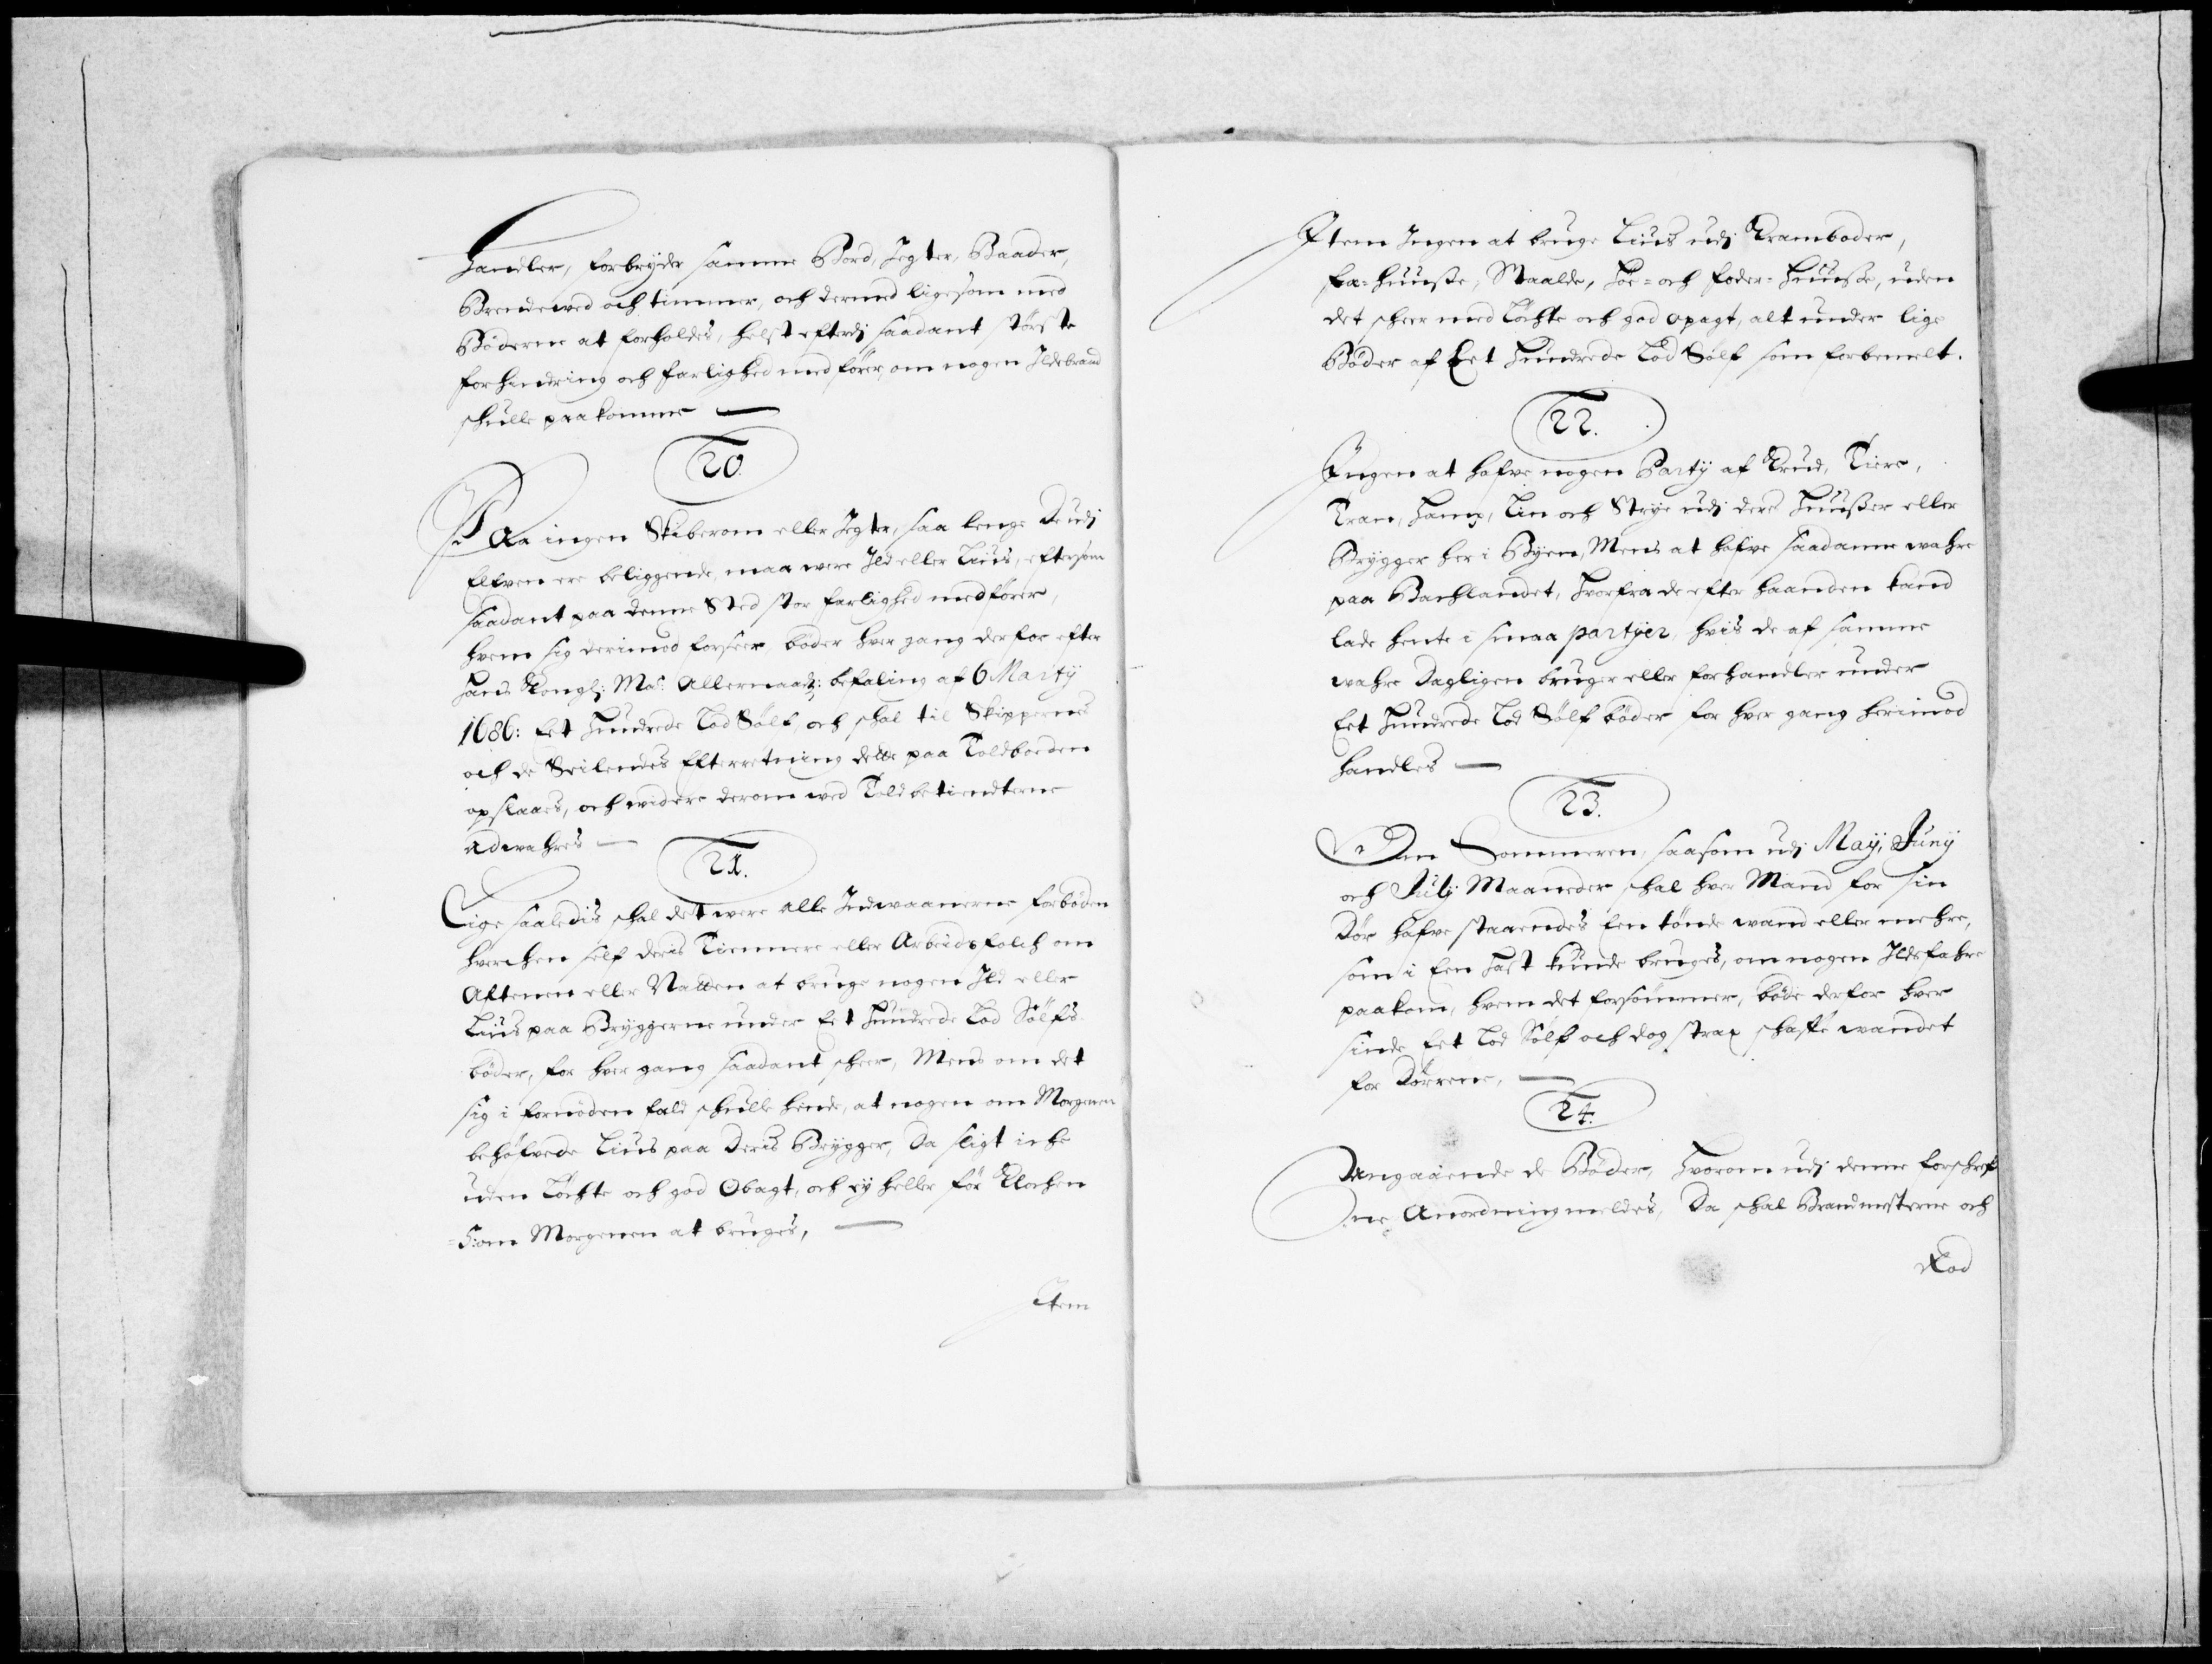 Handler, forbryder samme Bord, Jegter, Baader,
Brendewed och timmer, och dermed ligesom med
Böderne at forholdes, helst efterdj saadant störste
forhindring och farlighed medförer, om nogen Ildebrand
schulle paakomme
20.
Paa ingen Skiberom eller Jegter, saa lenge De udj
Elfven ere beliggende, maa were Ild eller Liuus, eftersom
saadant paa denne Sted stor farlighed medförer,
hvem sig derimod forseer, böder hver gang derfor efter
Hans Kongl: May: Allernaads: befaling af 6 Marty
1686: Eet Hundrede Lod Sölf, och schal til Skippernes
och de Seilendes Efterretning dette paa Toldboeden
opslaaes, och widere derom wed Toldbetiendterne
adwahres
21.
Lige saaledis schal det were alle Indwaanerne forböden
hverchen self deris Tiennere eller Arbeidsfolch om
Aftenen eller Natten at bruge nogen Ild eller
Liuus paa Bryggerne under Eet Hundrede Lod Sölfs
böder, for hver gang saadant scheer, Mens om det
sig i fornöden fald schulle hende, at nogen om Morgenen
behöfvede Liuus paa Deris Brygger, Da sligt iche
uden Löchte och god Obagt, och ey heller för Klochen
5: om Morgenen at bruges,
Item
Item Ingen at bruge Liuus udj Kramboder,
fæ-huusse, Staalde, Höe- och foder-Huusse, uden
det scheer med Löchte och god opagt, alt under lige
Böder af Eet Hundrede Lod Sölf som forbemelt.
22.
Ingen at hafve nogen Party af Krud, Tiere,
Tran, Hamp, Lin och Strye udj deris Huusser eller
Brygger her i Byen, Mens at hafve saadanne wahre
paa Bachlandet, Hvorfra de efter haanden kand
lade hente i smaa partyer, hvis de af samme
wahre Dagligen bruger eller forhandler under
Eet Hundrede Lod Sölf böder for hver gang herimod
handles
23.
Om Sommeren, saasom udj Maÿ, Junÿ
och Julÿ Maaneder schal hver Mand for sin
Dör hafve staaendes Een tönde wand eller mehre,
som i Een Hast kunde bruges, om nogen Ildsfahre
paakom, hvem det forsömmer, böde derfor hver
sinde Eet Lod Sölf och dog strax schaffe wandet
for Dörrene,
24.
Angaaende de Böder, Hvorom udj denne forschref-
ne Anordning meldes, Da schal Brandmesterne och
Rod